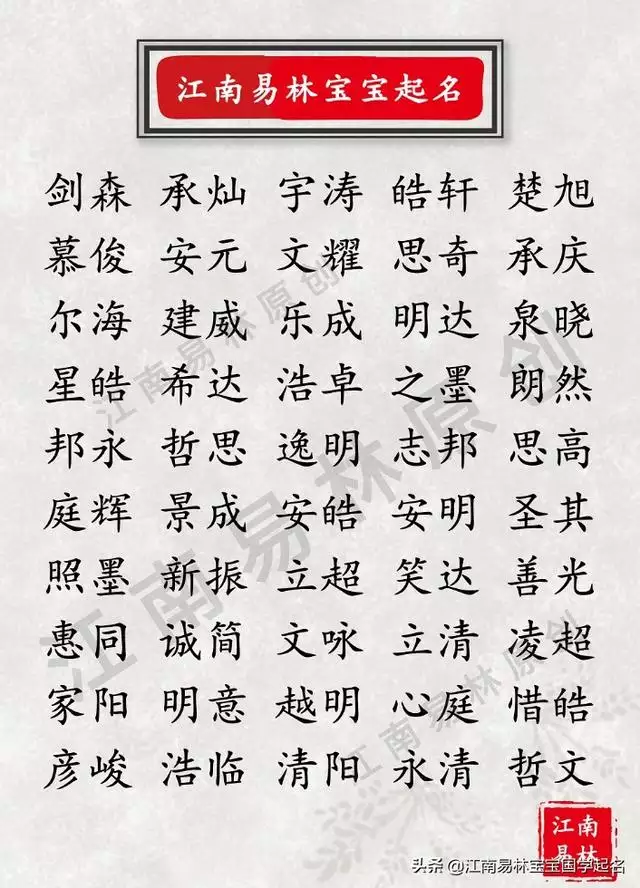 江南易林宝宝起名
剑森 承灿 宇涛 皓轩 楚旭
慕俊 安元 文耀 思奇 承庆
尔海 建威 乐成 明达 泉晓
星皓 希达 浩卓 之墨 朗然
邦永 哲思 逸明 志邦 思高
庭辉 景成 安皓 安明 圣其
照墨 新振 立超 笑达 善光
惠同 诚简 文咏 立清 凌超
家阳 明意 越明 心庭 惜皓
彦峻 浩临 清阳 永清 哲文
江南易林原创
江南易林原创
江南易林原创
江南
易林
头条 @江南易林宝宝国学起名